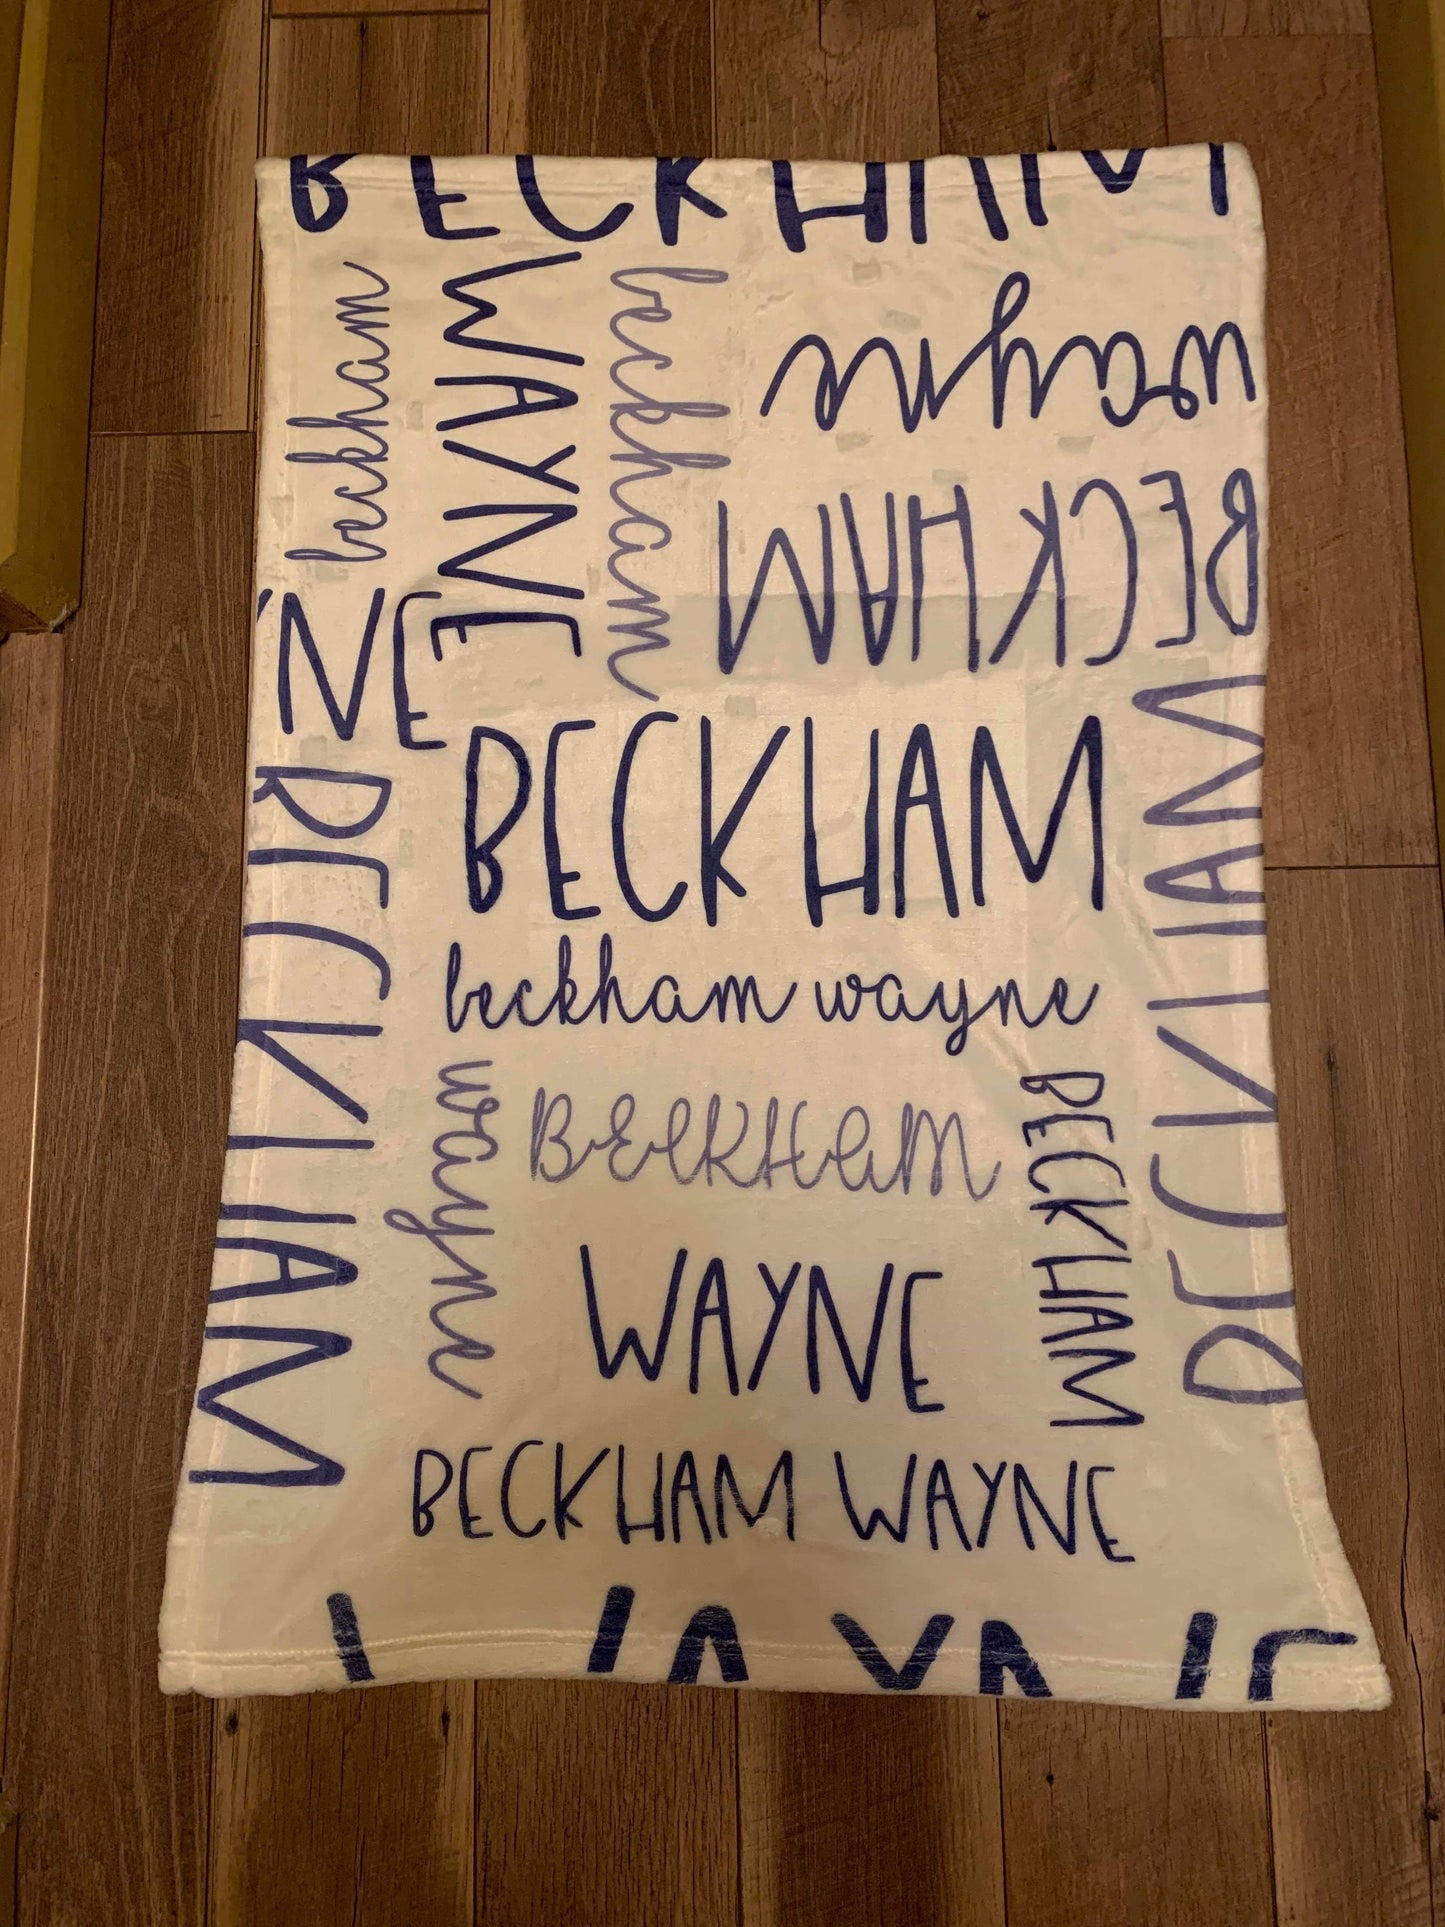 BECKHAM
beckham
WAYNE
beckham
wayne
BECKHAM
NE
BECKHAM
BECKHAM
BECKHAM
beckham wayne
wayne
BECKHAM
BECKHAM
WAYNE
BECKHAM WAYNE
WAYNE